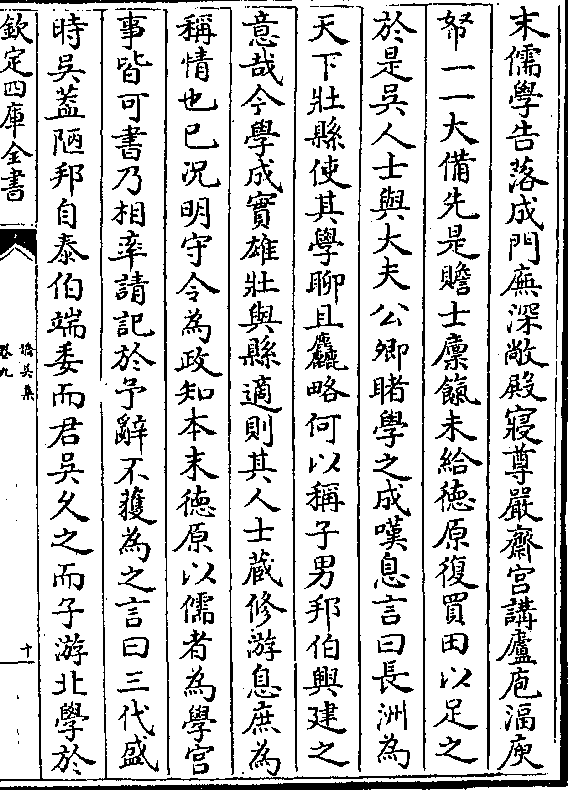 末儒學告落成門廡深敞殿寢尊嚴齋宮講廬庖湢庾
帑一一大備先是贍士廩餼未給徳原復買田以足之
於是吳人士與大夫公卿睹學之成嘆息言曰長洲為
天下壯縣使其學聊且麤略何以稱子男邦伯興建之
意哉今學成實雄壯與縣適則其人士蔵修游息庶為
稱情也已况明守令為政知本末徳原以儒者為學宮
事皆可書乃相率請記於予辭不獲為之言曰三代盛
時吳葢陋邦自泰伯端委而君吳乆之而子游北學於
欽定四庫全書
僑吳集
卷九
十